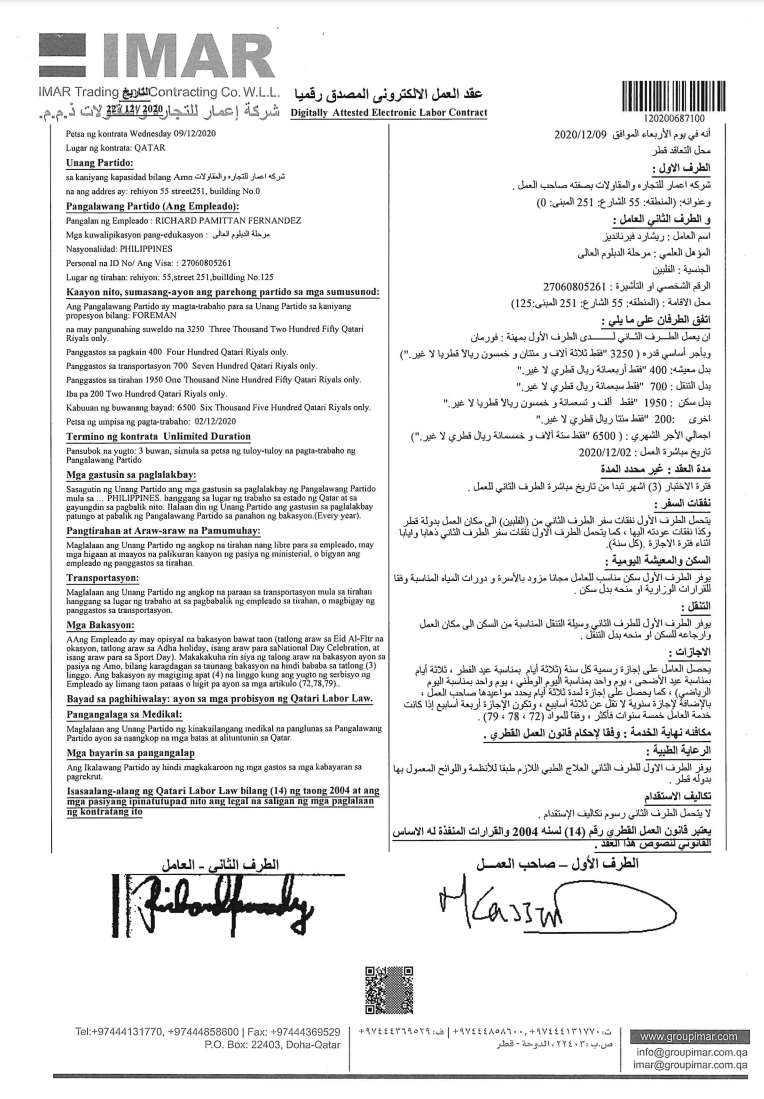 IMAR
IMAR Trading & Contracting Co. W.L.L.
شركة إعمار للتجارة والمقاولات ذ.م.م.
التاريخ
22/12/2020
عقد العمل الالكترونى المصدق رقميا
Digitally Attested Electronic Labor Contract
120200687100
Petsa ng kontrata Wednesday 09/12/2020
Lugar ng kontrata: QATAR
Unang Partido:
sa kaniyang kapasidad bilang Amo شركه اعمار للتجاره والمقاولات
na ang addres ay: rehiyon 55 street251, building No.0
Pangalawang Partido (Ang Empleado):
Pangalan ng Empleado : RICHARD PAMITTAN FERNANDEZ
Mga kuwalipikasyon pang-edukasyon : مرحلة الدبلوم العالى
Nasyonalidad: PHILIPPINES
Personal na ID No/ Ang Visa: : 27060805261
Lugar ng tirahan: rehiyon: 55,street 251,buillding No.125
Kaayon nito, sumasang-ayon ang parehong partido sa mga sumusunod:
Ang Pangalawang Partido ay magta-trabaho para sa Unang Partido sa kaniyang
propesyon bilang: FOREMAN
na may pangunahing suweldo na 3250 Three Thousand Two Hundred Fifty Qatari
Riyals only.
Panggastos sa pagkain 400 Four Hundred Qatari Riyals only.
Panggastos sa transportasyon 700 Seven Hundred Qatari Riyals only.
Panggastos sa tirahan 1950 One Thousand Nine Hundred Fifty Qatari Riyals only.
Iba pa 200 Two Hundred Qatari Riyals only.
Kabuuan ng buwanang bayad: 6500 Six Thousand Five Hundred Qatari Riyals only.
Petsa ng umpisa ng pagta-trabaho: 02/12/2020
Termino ng kontrata Unlimited Duration
Pansubok na yugto: 3 buwan, simula sa petsa ng tuloy-tuloy na pagta-trabaho ng
Pangalawang Partido
Mga gastusin sa paglalakbay:
Sasagutin ng Unang Partido ang mga gastusin sa paglalakbay ng Pangalawang Partido
mula sa ... PHILIPPINES. hanggang sa lugar ng trabaho sa estado ng Qatar at sa
gayungdin sa pagbalik nito. Ilalaan din ng Unang Partido ang gastusin sa paglalakbay
patungo at pabalik ng Pangalawang Partido sa panahon ng bakasyon.(Every year).
Pangtirahan at Araw-araw na Pamumuhay:
Maglalaan ang Unang Partido ng angkop na tirahan nang libre para sa empleado, may
mga higaan at maayos na palikuran kaayon ng pasiya ng ministerial, o bigyan ang
empleado ng panggastos sa tirahan.
Transportasyon:
Maglalaan ang Unang Partido ng angkop na paraan sa transportasyon mula sa tirahan
hanggang sa lugar ng trabaho at sa pagbabalik ng empleado sa tirahan, o magbigay ng
panggastos sa transportasyon.
Mga Bakasyon:
AAng Empleado ay may opisyal na bakasyon bawat taon (tatlong araw sa Eid Al-Fltr na
okasyon, tatlong araw sa Adha holiday, isang araw para saNational Day Celebration, at
isang araw para sa Sport Day). Makakakuha rin siya ng talong araw na bakasyon ayon sa
pasiya ng Amo, bilang karagdagan sa taunang bakasyon na hindi bababa sa tatlong (3)
linggo. Ang bakasyon ay magiging apat (4) na linggo kung ang yugto ng serbisyo ng
Empleado ay limang taon pataas o higit pa ayon sa mga artikulo (72,78,79)..
Bayad sa paghihiwalay: ayon sa mga probisyon ng Qatari Labor Law.
Pangangalaga sa Medikal:
Maglalaan ang Unang Partido ng kinakailangang medikal na panglunas sa Pangalawang
Partido ayon sa naangkop na mga batas at alituntunin sa Qatar.
Mga bayarin sa pangangalap
Ang Ikalawang Partido ay hindi magkakaroon ng mga gastos sa mga kabayaran sa
pagrekrut.
Isasaalang-alang ng Qatari Labor Law bilang (14) ng taong 2004 at ang
mga pasiyang ipinatutupad nito ang legal na saligan ng mga paglalaan
ng kontratang ito
أنه في يوم الأربعاء الموافق 2020/12/09
محل التعاقد قطر
الطرف الاول :
شركه اعمار للتجاره والمقاولات بصفته صاحب العمل .
وعنوانه: (المنطقه: 55 الشارع: 251 المبنى: 0)
و الطرف الثاني العامل :
اسم العامل : ريشارد فيرنانديز
المؤهل العلمي : مرحلة الدبلوم العالى
الجنسية : الفلبين
الرقم الشخصي او التأشيرة : 27060805261
محل الاقامة : (المنطقه: 55 الشارع: 251 المبنى:125)
اتفق الطرفان على ما يلي :
ان يعمل الطرف الثاني لـــدى الطرف الأول بمهنة : فورمان
وبأجر أساسي قدره ( 3250 "فقط ثلاثة آلاف و مئتان و خمسون ريالاً قطريا لا غير.")
بدل معيشه: 400 "فقط أربعمائة ريال قطري لا غير."
بدل التنقل : 700 "فقط سبعمائة ريال قطري لا غير."
بدل سكن : 1950 "فقط ألف و تسعمائة و خمسون ريالاً قطريا لا غير."
اخرى :200 "فقط مئتا ريال قطري لا غير."
اجمالي الأجر الشهري : ( 6500 "فقط ستة آلاف و خمسمائة ريال قطري لا غير.")
تاريخ مباشرة العمل : 2020/12/02
مدة العقد : غير محدد المدة
فترة الاختبار (3) اشهر تبدا من تاريخ مباشرة الطرف الثاني للعمل .
نفقات السفر :
يتحمل الطرف الأول نفقات سفر الطرف الثاني من (الفلبين) الى مكان العمل بدولة قطر
وكذا نفقات عودته إليها ، كما يتحمل الطرف الأول نفقات سفر الطرف الثاني ذهابا وايابا
اثناء فترة الاجازة .(كل سنة).
السكن والمعيشة اليومية :
يوفر الطرف الأول سكن مناسب للعامل مجانا مزود بالأسرة و دورات المياه المناسبة وفقا
للقرارات الوزارية او منحه بدل سكن .
التنقل :
يوفر الطرف الأول للطرف الثاني وسيلة التنقل المناسبة من السكن الى مكان العمل
وارجاعه للسكن او منحه بدل التنقل .
الاجازات :
يحصل العامل على إجازة رسمية كل سنة (ثلاثة أيام بمناسبة عيد الفطر ، ثلاثة أيام
بمناسبة عيد الأضحى ، يوم واحد بمناسبة اليوم الوطني ، يوم واحد بمناسبة اليوم
الرياضي) ، كما يحصل على إجازة لمدة ثلاثة أيام يحدد مواعيدها صاحب العمل ،
بالإضافة لإجازة سنوية لا تقل عن ثلاثة أسابيع ، وتكون الإجازة أربعة أسابيع إذا كانت
خدمة العامل خمسة سنوات فأكثر ، وفقا للمواد (72 ، 78 ، 79) .
مكافئه نهاية الخدمة : وفقا لإحكام قانون العمل القطري .
الرعاية الطبية :
يوفر الطرف الاول للطرف الثاني العلاج الطبي اللازم طبقا للأنظمة واللوائح المعمول بها
بدوله قطر .
تكاليف الاستقدام
لا يتحمل الطرف الثاني رسوم تكاليف الإستقدام .
يعتبر قانون العمل القطري رقم (14) لسنه 2004 والقرارات المنفذة له الاساس
القانوني لنصوص هذا العقد .
الطرف الثانى - العامل
الطرف الأول – صاحب العمـــل
Tel:+97444131770, +97444858600 | Fax: +97444369529
P.O. Box: 22403, Doha-Qatar
ت: +٩٧٤٤٤١٣١٧٧٠، +٩٧٤٤٤٨٥٨٦٠٠ | ف: +٩٧٤٤٤٣٦٩٥٢٩
ص.ب: ٢٢٤٠٣، الدوحة - قطر
www.groupimar.com
info@groupimar.com.qa
imar@groupimar.com.qa